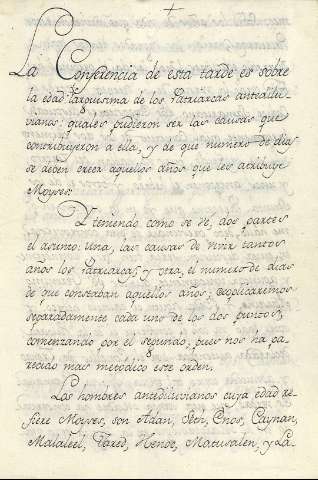 La Conferencia de esta tarde es sobre
la edad larguisima de los Patriarcas antedilu-
vianos: quales pudieron ser las causas que
contribuyeron á ella, y de que numero de dias
se deben creer aquellos años que les atribuye
Moyses.
Y teniendo como se vé, dos partes
el asunto: una, las causas de vivir tantos
años los Patriarcas; y otra, el numero de dias
de que constaban aquellos años; explicaremos
separadamente cada uno de los dos puntos,
comenzando por el segundo; pues nos ha pa-
recido mas metodico este orden.
Los hombres antediluvianos cuya edad re-
fiere Moyses, son Adan, Seth, Enos, Caynan,
Malaleel, Jared, Henoc, Matusalen, y La-